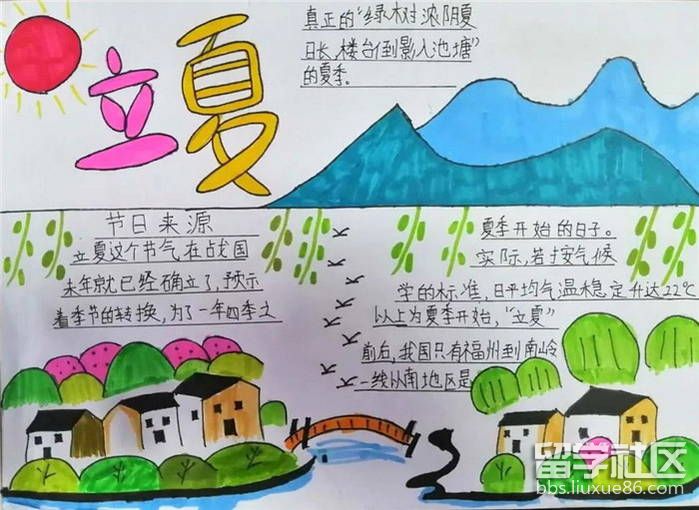 立夏
真正的“绿树浓阴夏
日长,楼台倒影入池塘”
的夏季。
节日来源
立夏这个节气在战国
末年就已经确立了,预示
着季节的转换,为了一年四季之
夏季开始的日子。
实际,若按气候
学的标准,日平均气温稳定升达22℃
以上为夏季开始,“立夏”
前后,我国只有福州到南岭
一线以南地区是
留学社区
bbs.liuxue86.com